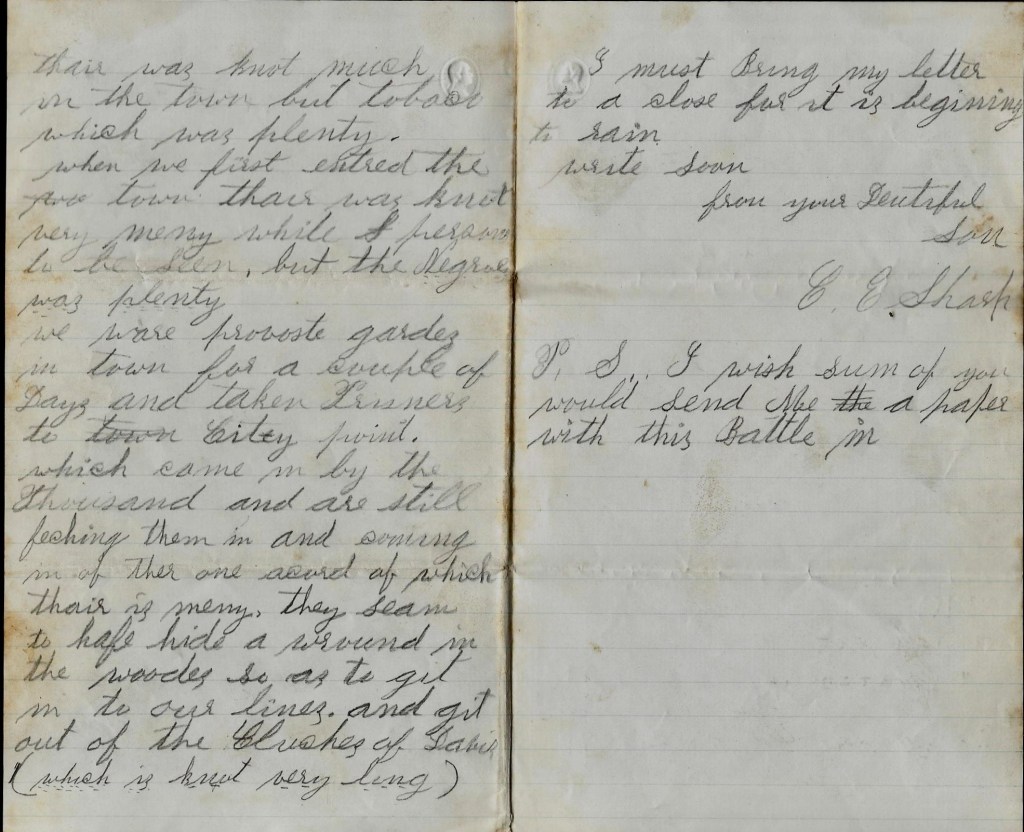 thair was knot much
in the town but tobaco
which was plenty.
when we first entred the
town thair was knot
very meny while persons
to be seen, but the Negroes
was plenty
we ware provoste gardes
in town for a couple of
Days and taken Prisners
to town Citty point.
which came in by the
Thousand and are still
feching them in and coming
in of ther one acord of which
thair is meny, they seam
to hafe hide a wround in
the woodes so as to git
in to our lines. and git
out of the Cluches of Davis
(which is knot very long)
I must Bring my letter
to a close for it is begining
to rain
write soon
from your Deutiful
Son
C. E. Sharp
P. S.. I wish sum of you
would send Me the a paper
with this Battle in